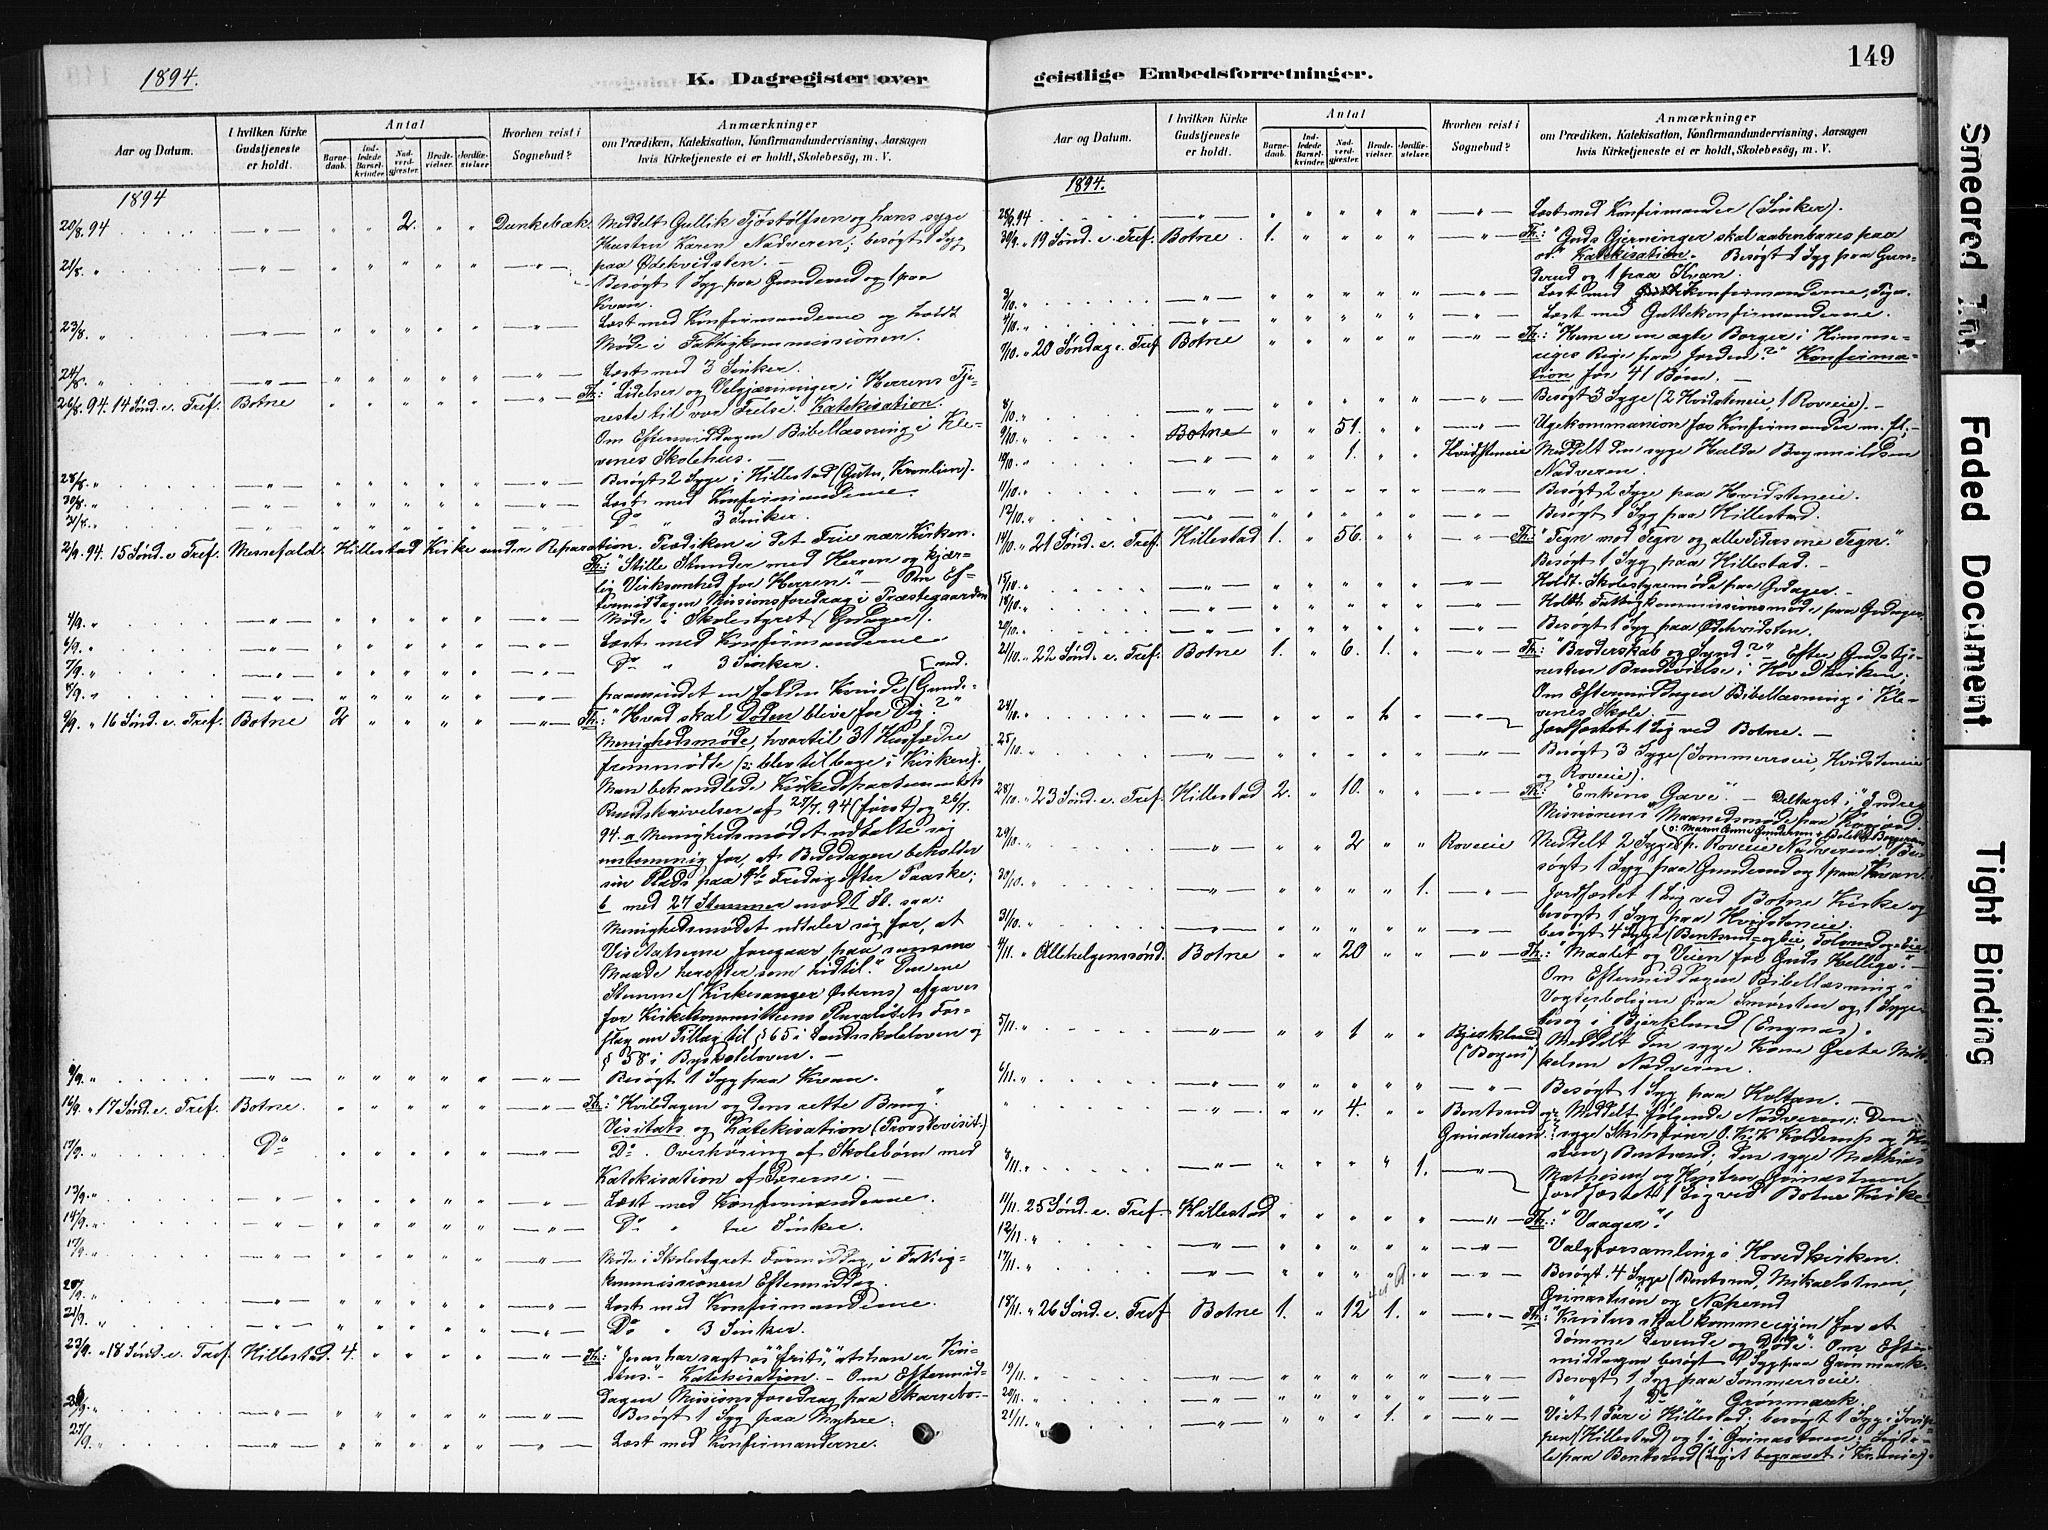 1894.
K. Dagregister over
Aar og Datum.
I hvilken Kirke Gudstjeneste er holdt.
Antal
Barnedaab.
Indledede Barselkvinder.
Nadverdgjæster.
Brudevielser.
Jordfæstelser.
Hvorhen reist i Sognebud?
Anmærkninger
om Prædiken, Katekisation, Konfirmandundervisning, Aarsagen
hvis Kirketjeneste ei er holdt, Skolebesøg, m. V.
1894
20/8.94 2. Dunkebæk. Meddelt Gullik Tjøstolfsen og hans syge
Hustru Karen Nadveren; besøgt 1 Syg
21/8. " paa Ødekvidsten.
Besøgt 1 Syg paa Gunderud og 1 paa
Kvan.
23/8. " Læst med Konfirmanderne og holdt
Møde i Fattigkommissionen.
24/8. " Læst med 3 Sinker.
26/8. 94. 14 Sønd. e. Tref. Botne Th: "Lidelser og Velgjærninger i Herrens Tje-
neste til vor Frelse." Katekisation.
Om Eftermiddagen Bibellæsning i Kle-
venes Skolehus. —
28/8. " Besøgt 2 Syge i Hillestad
30/8. " Læst med Konfirmanderne.
31/8. " Do " 3 Sinker.
2/9. 94. 15 Sønd. e. Tref. Messefald. Hillestad Kirke under Reparation. Prædiken i det Frie nær Kirken.
Th: "Stille Stunder med Herren og kjær-
lig Virksomhed for Herren." — Om Ef-
termiddagen Missionsforedrag i Præstegaarden
4/9. " Møde i Skolestyret (Godager).
6/9. " Læst med Konfirmanderne
7/9. " Do " 3 Sinker.
8/9. " paamindet en falden Kvinde (Gunde-
[rud.
9/9. " 16 Sønd. e. Tref. Botne 2 Th: "Hvad skal Døden blive for Dig?"
Menighedsmøde, hvortil 31 Husfædre
fremmødte (blev tilbage i Kirken).
Man behandlede Kirkedepartementets
Rundskrivelser af 27/7. 94 (først) og 26/7.
94. a Menighedsmødet udtalte sig
enstemmig for, at Bededagen beholder
sin Plads paa 4de Fredag efter Paaske;
b med 27 Stemmer mod 1 saa:
Menighedsmødet udtaler sig for, at
Visitatserne foregaar paa samme
Maade herefter som hidtil." Den ene
Stemme (Kirkesanger Østerns) afgaves
for Kirkekommitteens Pluralitets For-
slag om Tillæg til § 65 i Landsskoleloven og
§ 58 i Byskoleloven. —
9/9. " Besøgt 1 Syg paa Kvan.
16/9. " 17 Sønd. e. Tref. Botne. Th: "Hviledagen og dens rette Brug."
Visitats og Katekisation (Provstevisit.)
17/9. " Do Do. Overhøring af Skolebørn med
Katekisation af Lærerne. —
13/9. " Læst med Konfirmanderne.
14/9. " Do " tre Sinker.
17/9. " Møde i Skolestyret Formiddag, i Fattig-
kommissionen Eftermiddag.
20/9. " Læst med Konfirmanderne.
21/9. " Do " 3 Sinker.
23/9. " 18 Sønd. e. Tref. Hillestad. 4. Th: "Jesus har sagt os "frit", at han er Kri-
stus". — Katekisation. — Om Eftermid-
dagen Missionsforedrag paa Skarrebo.—
Besøgt 1 Syg paa Myhre.
27/9. " Læst med Konfirmanderne.
149
geistlige Embedsforretninger.
Aar og Datum.
I hvilken Kirke Gudstjeneste er holdt.
Antal
Barnedaab.
Indledede Barselkvinder.
Nadverdgjæster.
Brudevielser.
Jordfæstelser.
Hvorhen reist i Sognebud?
Anmærkninger
om Prædiken, Katekisation, Konfirmandundervisning, Aarsagen
hvis Kirketjeneste ei er holdt, Skolebesøg, m. V.
1894.
28/9.94 Læst med Konfirmander (Sinker).
30/9. " 19 Sønd. e. Tref. Botne. 1. Th: "Guds Gjerninger skal aabenbares paa
os." Katekisation. Besøgt 1 Syg paa Gun-
derud og 1 paa Kvan.
3/10. " Læst med Konfirmanderne,
4/10. " Læst med Guttekonfirmanderne.
7/10. " 20 Søndag e. Tref. Botne Th: "Hvem er en ægte Borger i Himme-
riges Rige paa Jorden?" Konfirma-
tion for 41 Børn. —
8/10. " Besøgt 3 Syge (2 Hvidsteneie, 1 Roveeie). —
9/10. " Botne 51. Ugekommunion for Konfirmander m. fl. —
10/10. " 1. Hvidsteneie Meddelt den syge
Nadveren.
11/10. " Besøgt 2 Syge paa Hvidsteneie.
12/10. " Besøgt 1 Syg paa Hillestad.
14/10. " 21 Sønd. e. Tref. Hillestad 1. 56. Th: "Tegn mod Tegn og alle Tiders ene Tegn."
Besøgt 1 Syg paa Hillestad. —
15/10. " Holdt Skolestyremøde paa Godager. —
18/10. " Holdt Fattigkommissionsmøde paa Godager.
20/10. " Besøgt 1 Syg paa Ødekvidsten.
21/10. " 22 Sønd. e. Tref. Botne 1. 6. 1. Th: "Broderskab og Synd?" Efter Gudstje-
nesten Brudevielse i Hovedkirken;
Om Eftermiddagen Bibellæsning i Kle-
venes Skole. —
24/10. " Jordfæstet 1 Lig ved Botne. —
25/10. " Besøgt 3 Syge (Sommerroeie, Hvidsteneie
og Roveeie).
28/10. " 23 Sønd. e. Tref. Hillestad 2. 10. Th: "Enkens Gave". — Deltaget i "Indre
Missionens" Maanedsmøde paa
29/10. " 2 Roveeie Meddelt 2 Syge p. Roveeie Nadveren. Be-
søgt 1 Syg paa Gunderud og 1 paa Kvan.
30/10. " 1. Jordfæstet 1 Lig ved Botne Kirke og
besøgt 1 Syg paa Hvidsteneie.
31/10. " besøgt 4 Syge
4/11. " Allehelgenssønd. Botne 20 Th: "Maalet og Veien for Guds Hellige." —
Om Eftermiddagen Bibellæsning i
Vogterboligen paa Smørsten og 1 Syge-
besøg i Bjerklund (Engnæs).
5/11. " 1 Bjerklund Meddelt den syge Kone Grete Mik-
kelsen Nadveren.
6/11. " Besøgt 1 Syg paa Holtan. —
" 4. Bentsrud og Meddelt følgende Nadveren: Den
Grinastuen syge Skibsfører O. K. K. Holdemp og
Bentsrud; den syge Mathias
8/11. " 1. Mathisen og Hustru, Grinastuen
Jordfæstet 1 Lig ved Botne Kirke.
11/11. 25 Sønd. e. Tref. Hillestad Th: "Vaager".
12/11. " Valgforsamling i Hovedkirken.
17/11. " Besøgt 4 Syge (Bentsrud, Mikaelstuen,
Grinastuen og Næperud
18/11. " 26 Sønd. e. Tref. Botne 1. 12 1. Th: "Kristus skal komme igjen for at
dømme Levende og Døde". Om Efter-
middagen besøgt Syg paa Grønmark.
19/11. Besøgt 1 Syg paa Sommerroeie.
20/11. " 1 Do " Grønmark.
21/11. " 1. Viet 1 Par i Hillestad; besøgt 1 Syg i
(Hillestad) og 1 i Grinastuen;
paa Bentsrud (Liget begravet i Kr.ania).
Smeared Ink
Faded Document
Tight Binding